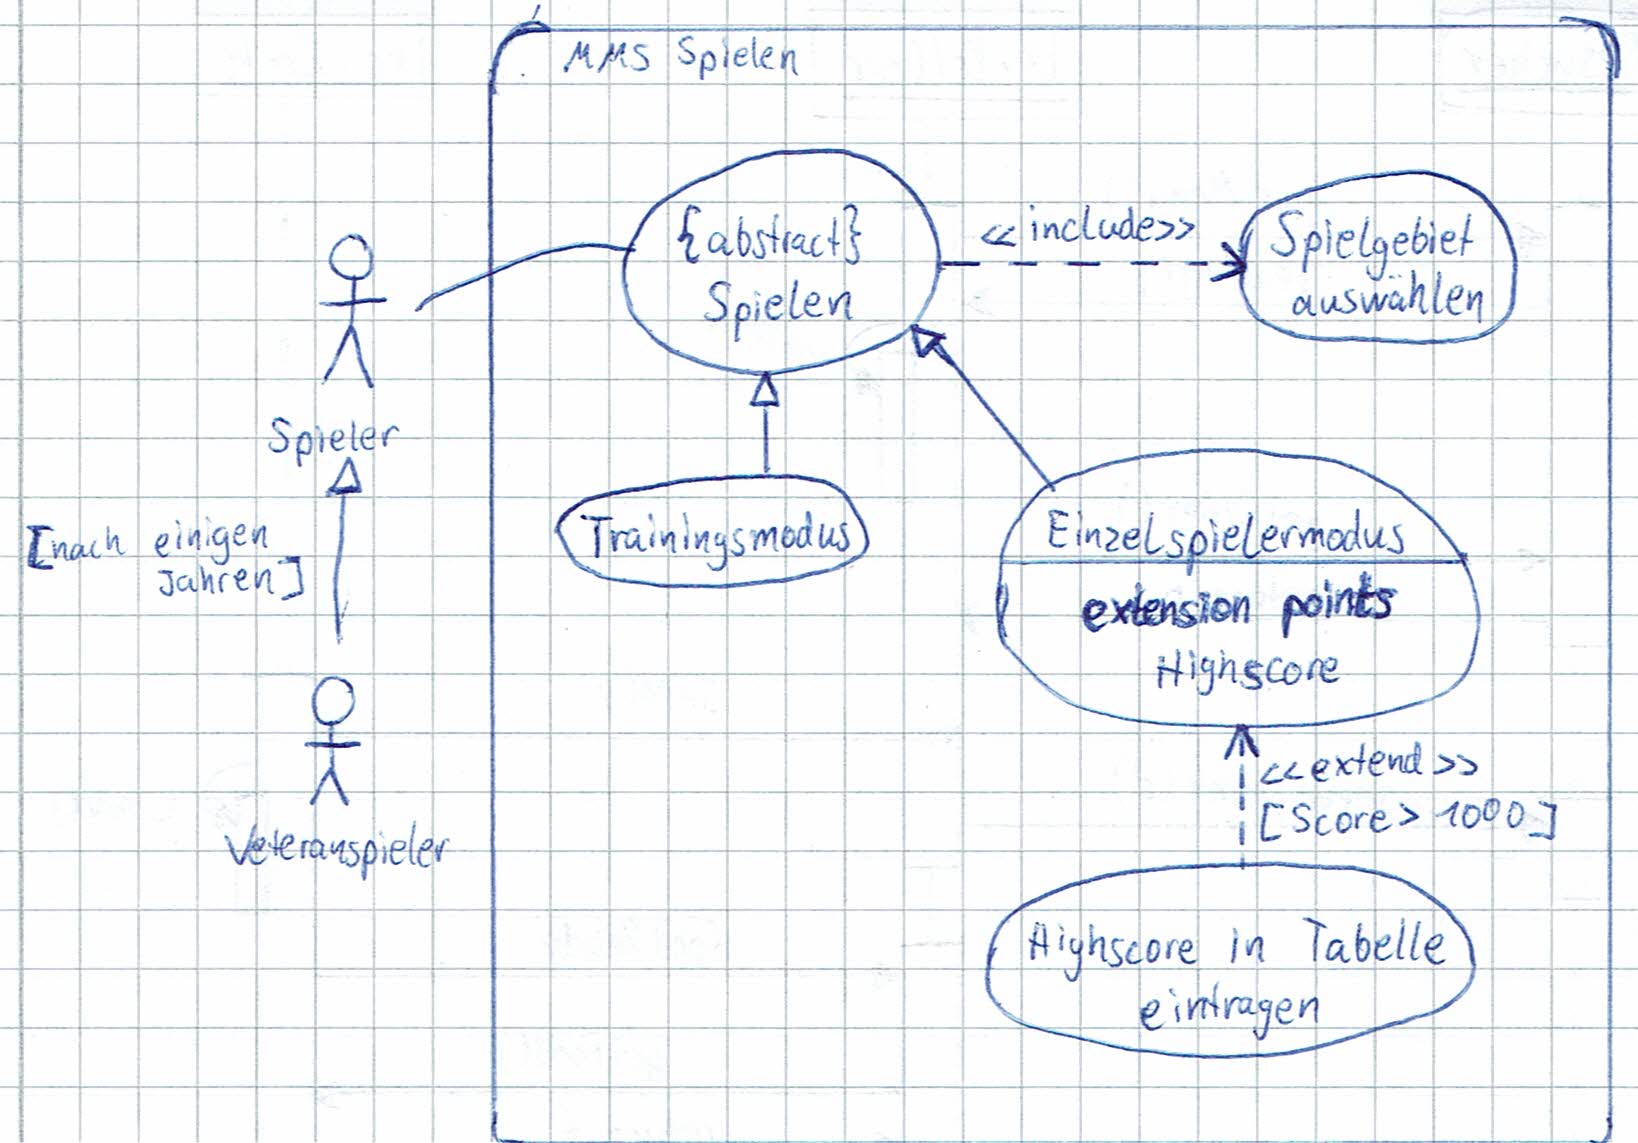 MMS Spielen
{abstract}
Spielen
<<include>>
Spielgebiet
auswählen
Spieler
[nach einigen
Jahren]
Trainingsmodus
Einzelspielermodus
extension points
Highscore
<<extend>>
[Score > 1000]
Veteranspieler
Highscore in Tabelle
eintragen